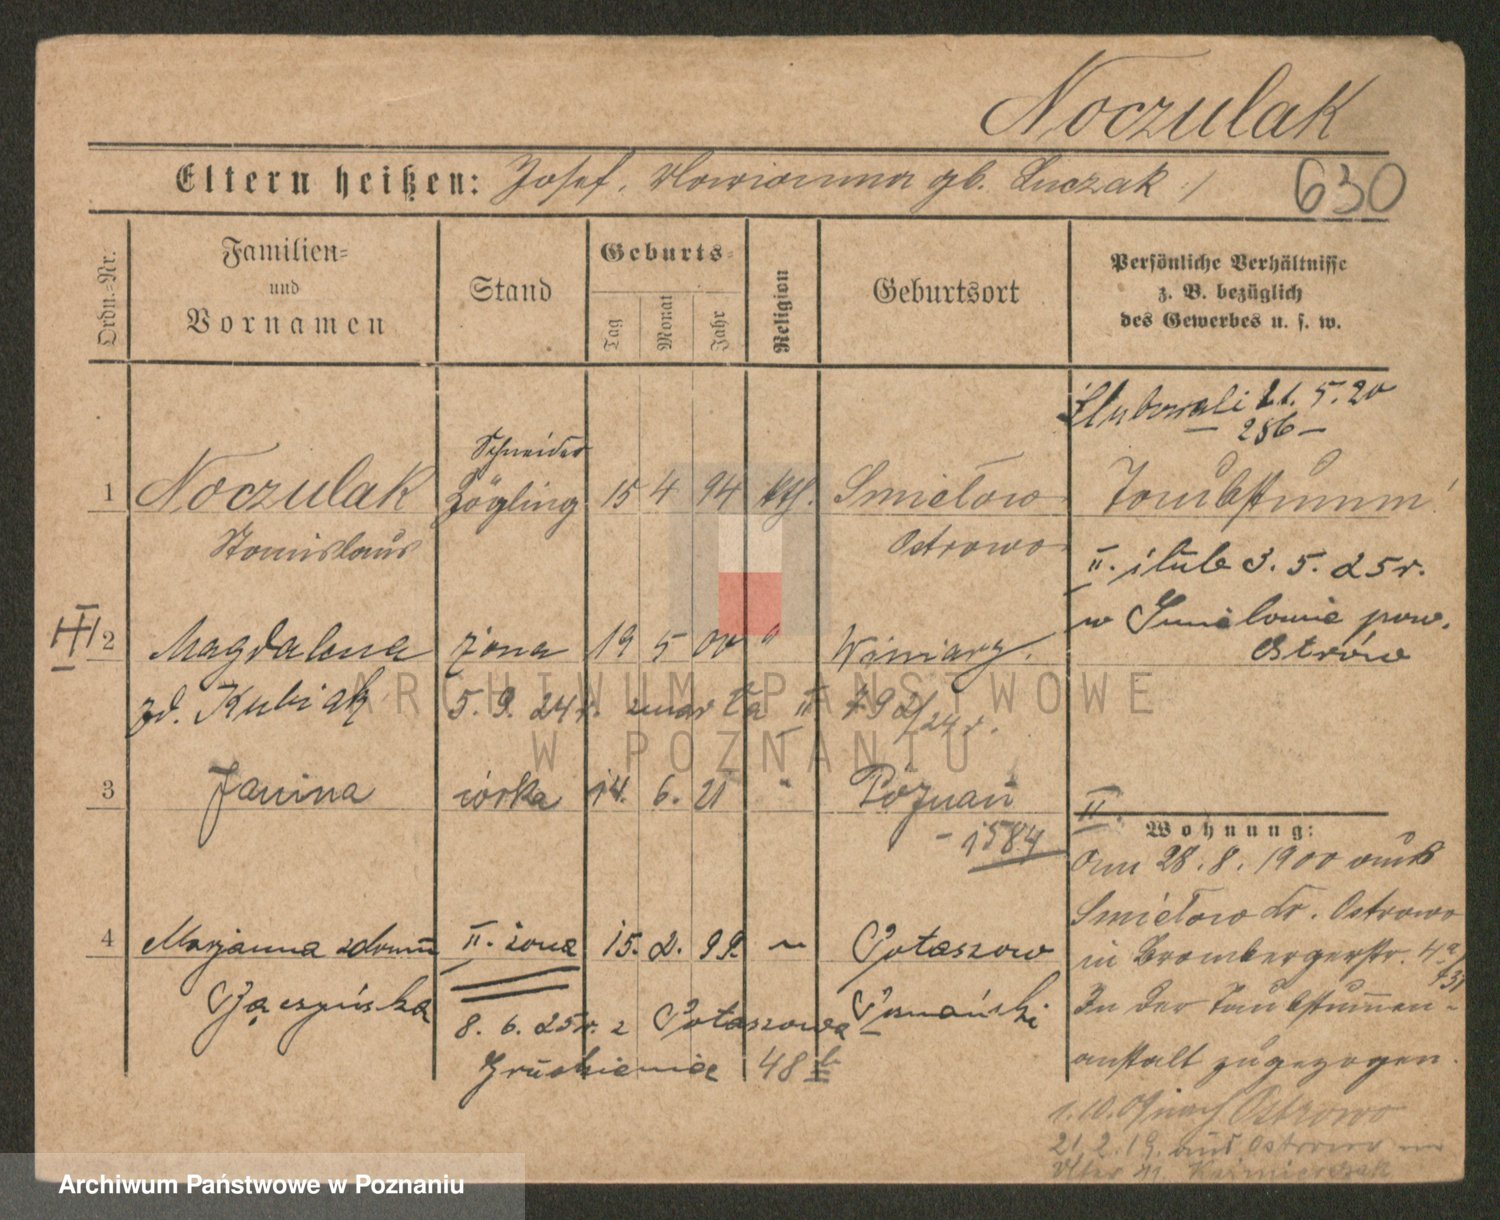 Noczulak
Eltern heißen: Josef, Marianna gb. Luczak
630
Ordn.-Nr.
Familien- und Vornamen
Stand
Geburts-
Tag Monat Jahr
Religion
Geburtsort
Persönliche Verhältnisse
z. B. bezüglich
des Gewerbes u. s. w.
Ślubowali 21. 5. 20
286
Schneider
1 Noczulak Zögling 15 4 94 kth. Smiełow Taubstumm!
Stanislaus Ostrowo
II. ślub 3. 5. 25 r.
w Śmiełowie pow.
Ostrów
2 Magdalena żona 19 5 00 " Winiary.
zd. Kubiak 5. 9. 24 r. zmarła 792/24 r.
3 Janina córka 14. 6. 21 " Poznań
1584
II.
Wohnung:
Am 28. 8. 1900 aus
Smiełow Kr. Ostrowo
in Brombergerstr. 4a/
In der Taubstummen-
anstalt zugezogen.
4 Marjanna zdomu II. żona 15. 2. 99. " Potaszow
Poznański
8. 6. 25 r. z Potaszowa
48
1. 10. nach Ostrowo
21. 2. 19. aus Ostrowo
ARCHIWUM PAŃSTWOWE
W POZNANIU
Archiwum Państwowe w Poznaniu